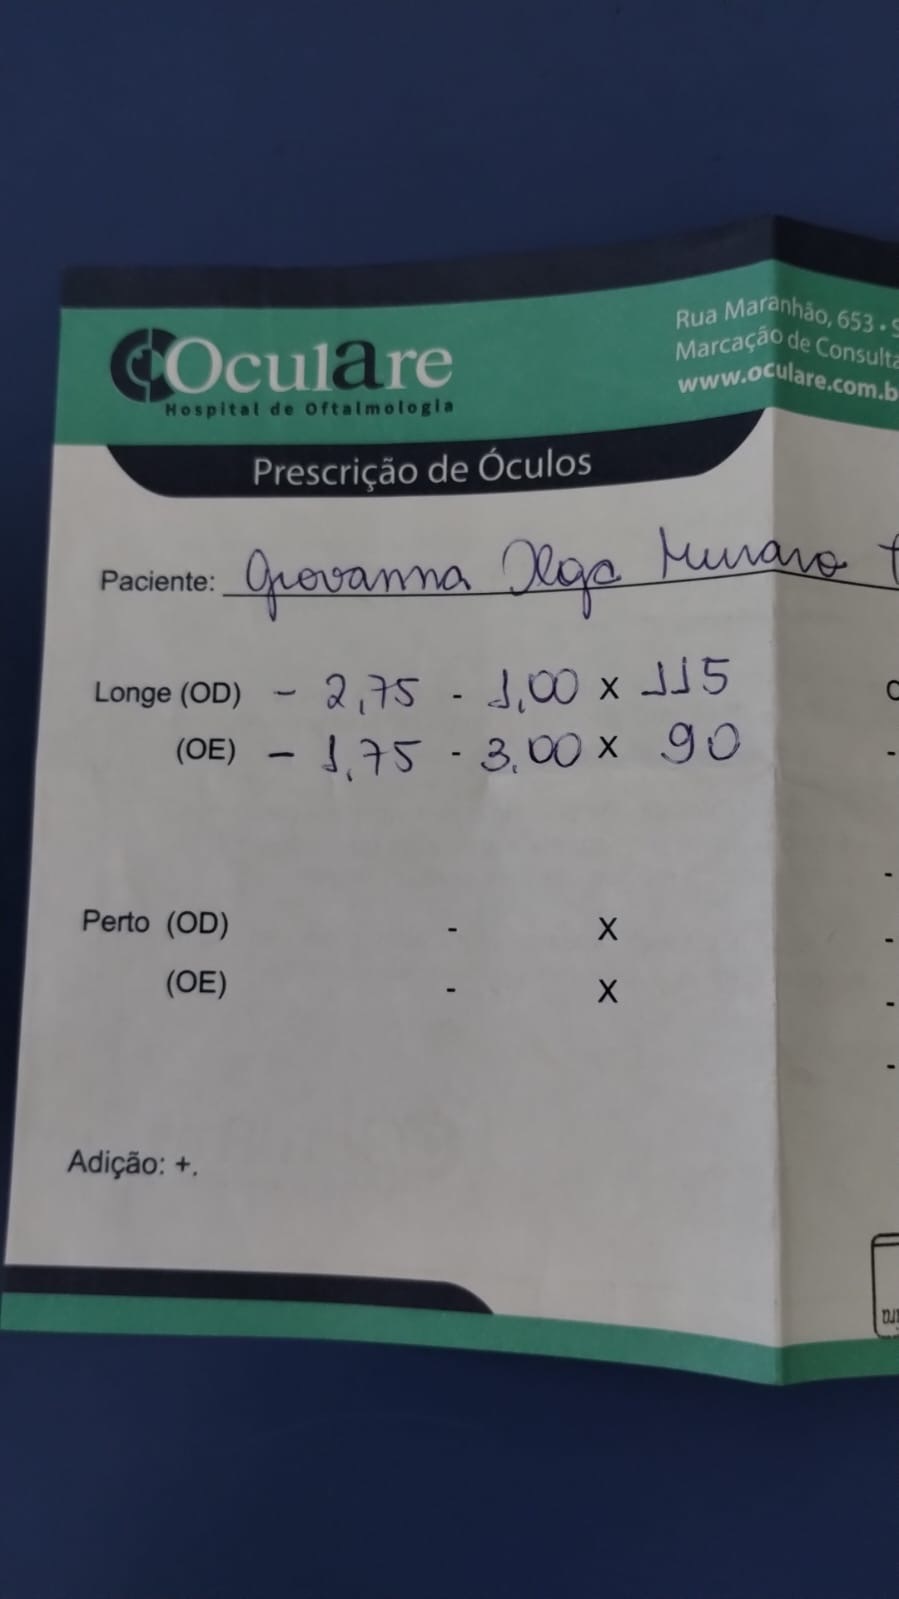 Oculare
Hospital de Oftalmologia
Rua Maranhão, 653 •
Marcação de Consulta
www.oculare.com.b
Prescrição de Óculos
Paciente: Giovanna Olga Muraro
Longe (OD) - 2,75 - 1,00 x 115
(OE) - 1,75 - 3,00 x 90
-
-
Perto (OD) - X
-
(OE) - X
-
-
Adição: +.